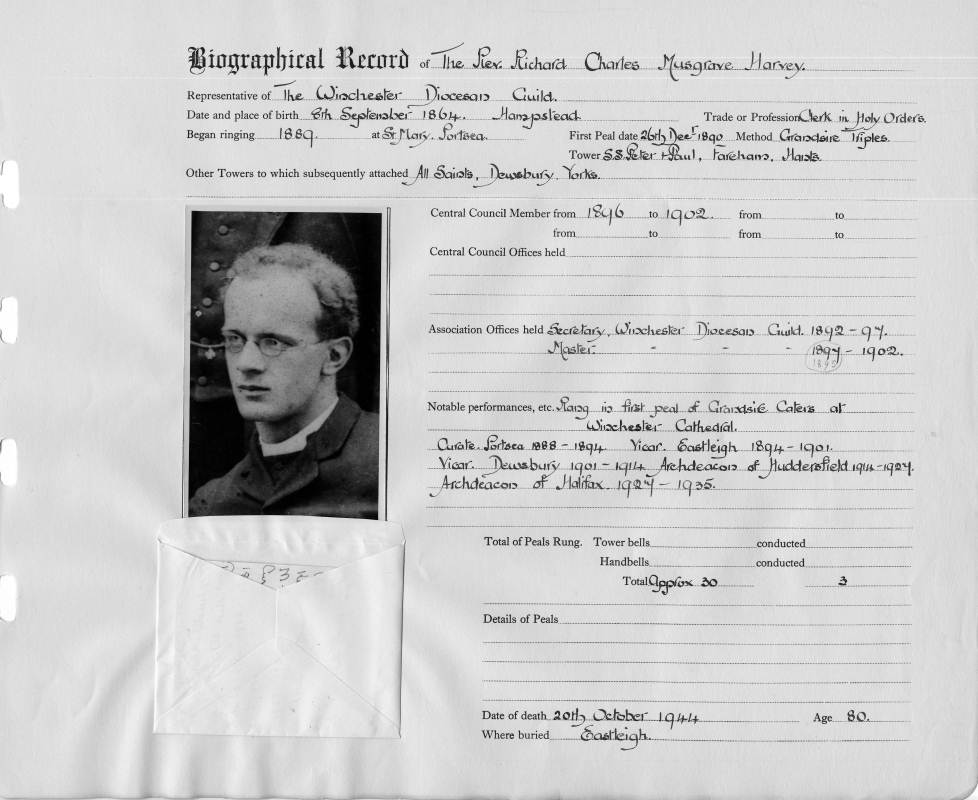 Biographical Record of The Rev. Richard Charles Musgrave Harvey.
Representative of The Winchester Diocesan Guild.
Date and place of birth 8th September 1864. Hampstead Trade or Profession Clerk in Holy Orders.
Began ringing 1889. at St Mary. Portsea. First Peal date 26th Decr 1890 Method Grandsire Triples.
Tower S.S. Peter & Paul, Fareham, Hants.
Other Towers to which subsequently attached All Saints, Dewsbury. Yorks.
Central Council Member from 1896 to 1902. from to
from to from to
Central Council Offices held
Association Offices held Secretary, Winchester Diocesan Guild. 1892 - 97.
Master. " " " 1897 - 1902.
Notable performances, etc. Rang in first peal of Grandsire Caters at
Winchester Cathedral.
Curate. Portsea 1888 - 1894. Vicar. Eastleigh 1894 - 1901.
Vicar. Dewsbury 1901 - 1914. Archdeacon of Huddersfield 1914 - 1927.
Archdeacon of Halifax. 1927 - 1935.
Total of Peals Rung. Tower bells conducted
Handbells conducted
Total Approx 30 3
Details of Peals
Date of death 20th October 1944 Age 80.
Where buried Eastleigh.